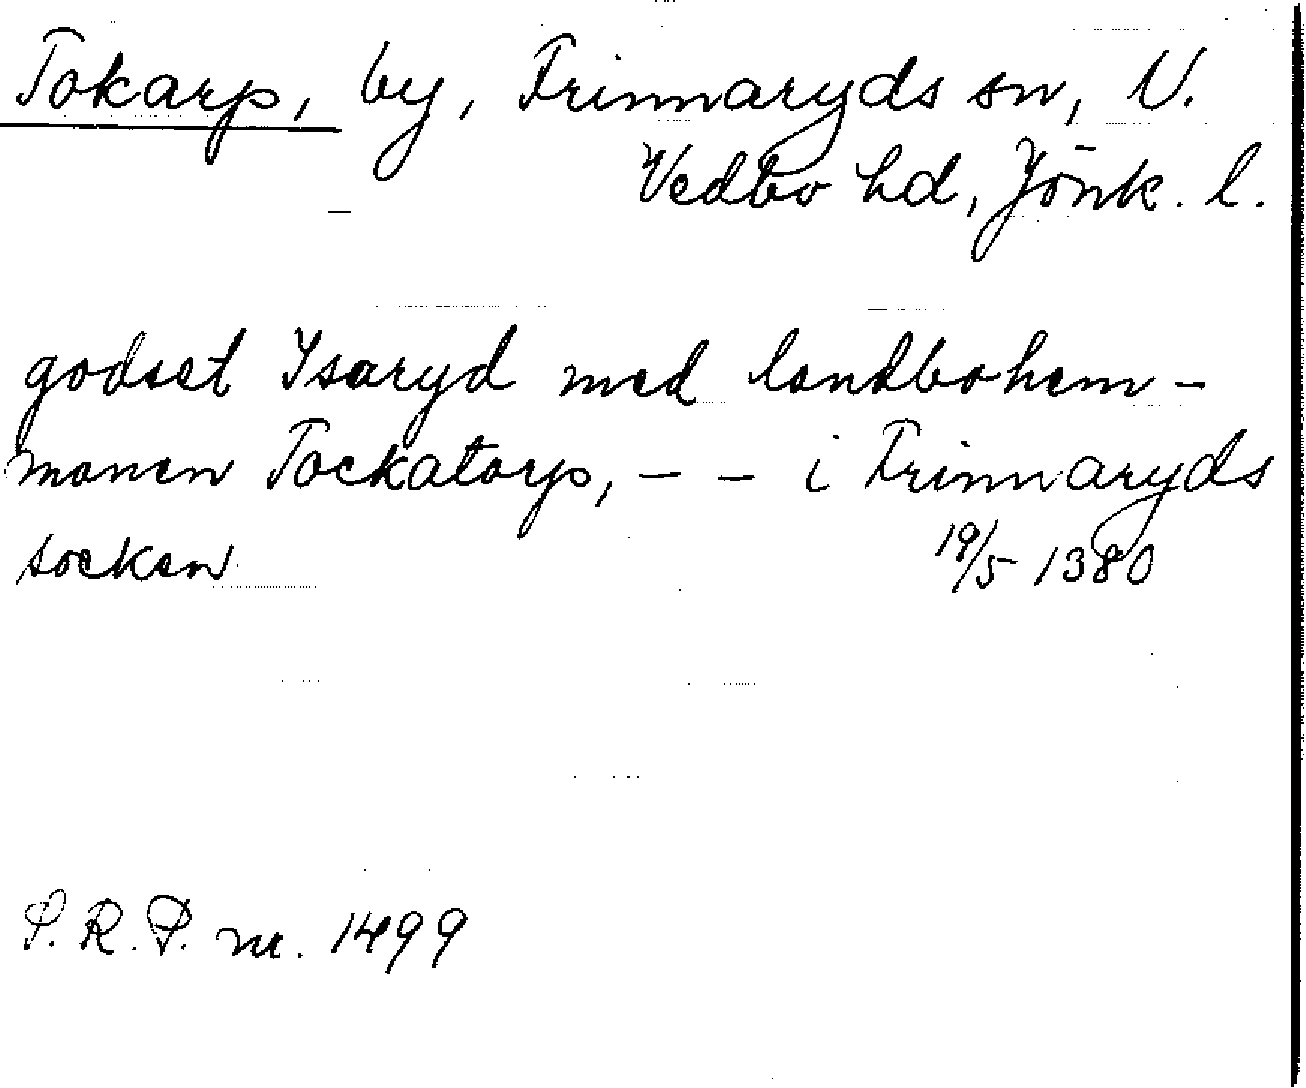 Tokarp, by, Frinnaryds sn, N.
Vedbo hd, Jönk. l.
godset Ysaryd med landbohem-
manen Tockatorp, - - i Frinnaryds
socken 19/5 1380
S.R.P. nr. 1499